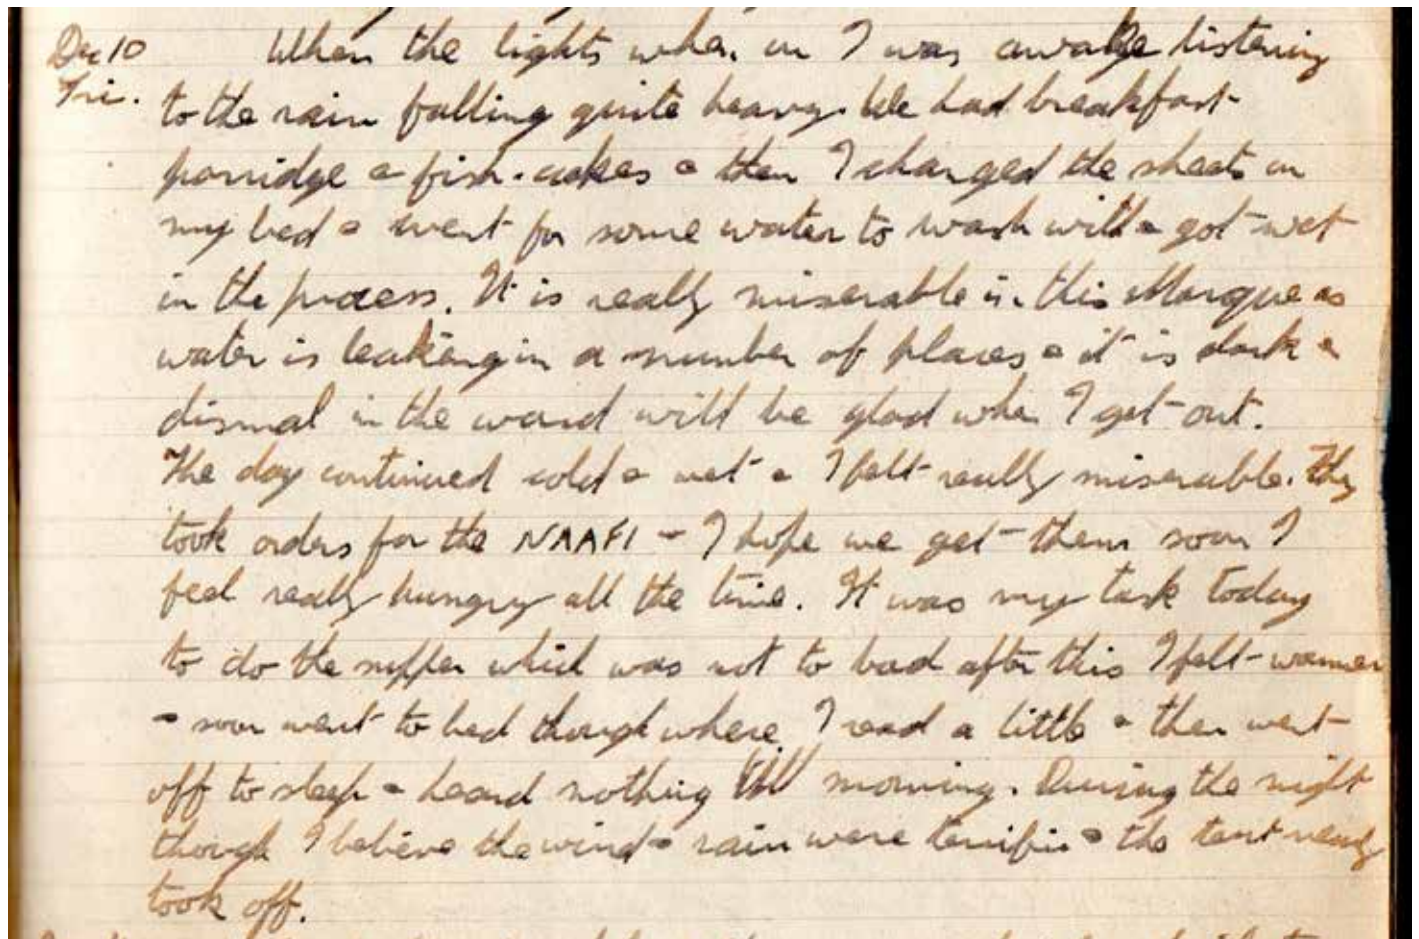 Dec 10 When the lights when on I was awake listening
Fri. to the rain falling quite heavy. We had breakfast
porridge & fish-cakes & then I changed the sheets on
my bed & went for some water to wash with & got wet
in the process. It is really miserable in this Marque as
water is leaking in a number of places & it is dark &
dismal in the ward will be glad when I get out.
The day continued cold & wet & I felt really miserable. They
took orders for the NAAFI - I hope we get them soon I
feel really hungry all the time. It was my task today
to do the supper which was not to bad after this I felt warmer
& soon went to bed though where I read a little & then went
off to sleep & heard nothing till morning. During the night
though I believe the wind & rain were terrific & the tent nearly
took off.